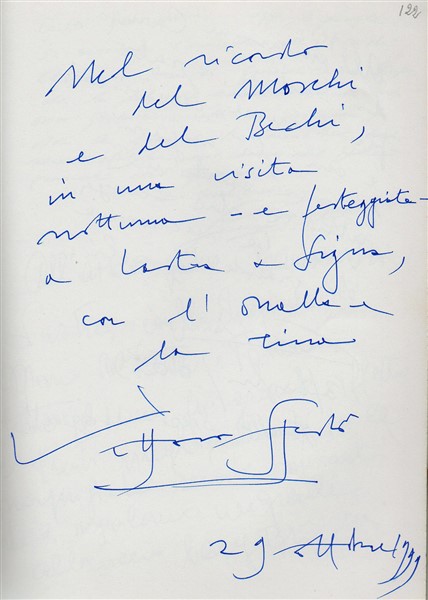 122
Nel ricordo
del Moschi
e del Bechi,
in una visita
notturna - e festeggiata -
a Lastra a Signa,
con l'
la Tina
29 ottobre 1999